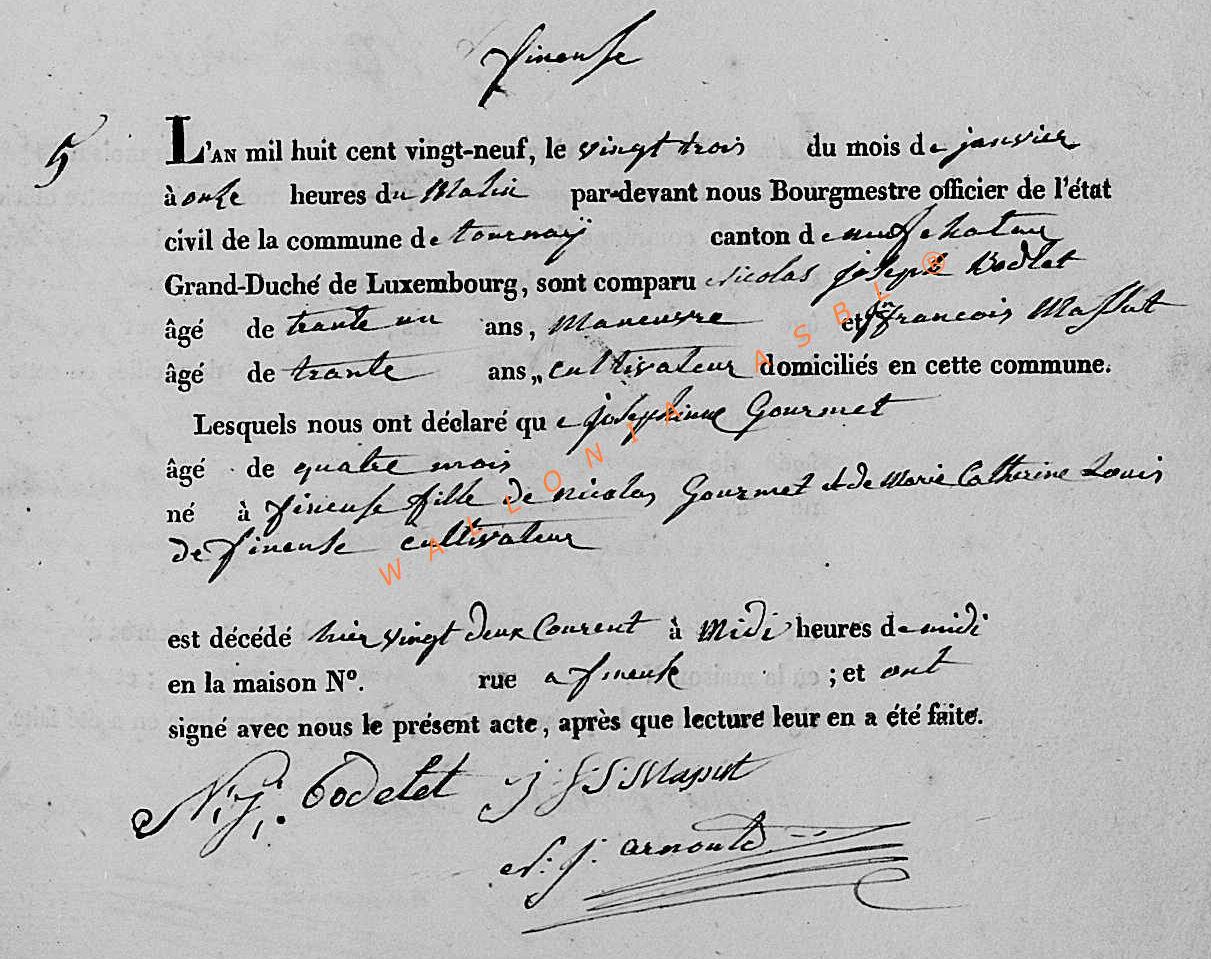 fineuse
5
L'AN mil huit cent vingt-neuf, le vingt trois du mois de janvier
à onze heures du Matin par-devant nous Bourgmestre officier de l'état
civil de la commune de tournaÿ canton de neufchateau
Grand-Duché de Luxembourg, sont comparu Nicolas joseph Bodlet
âgé de trante un ans, Maneuvre et jn françois Massut
âgé de trante ans, cultivateur domiciliés en cette commune.
Lesquels nous ont déclaré que josephinne Gourmet
âgé de quatre mois
né à fineuse fille de nicolas Gourmet et de Marie Catherine Louis
de fineuse cultivateur
est décédé hier vingt deux Courent à Midi heures de midi
en la maison N°. rue a fineuse ; et ont
signé avec nous le présent acte, après que lecture leur en a été faite.
N. j. bodelet j f s Massut
N. j. arnould
WALLONIA ASBL ®